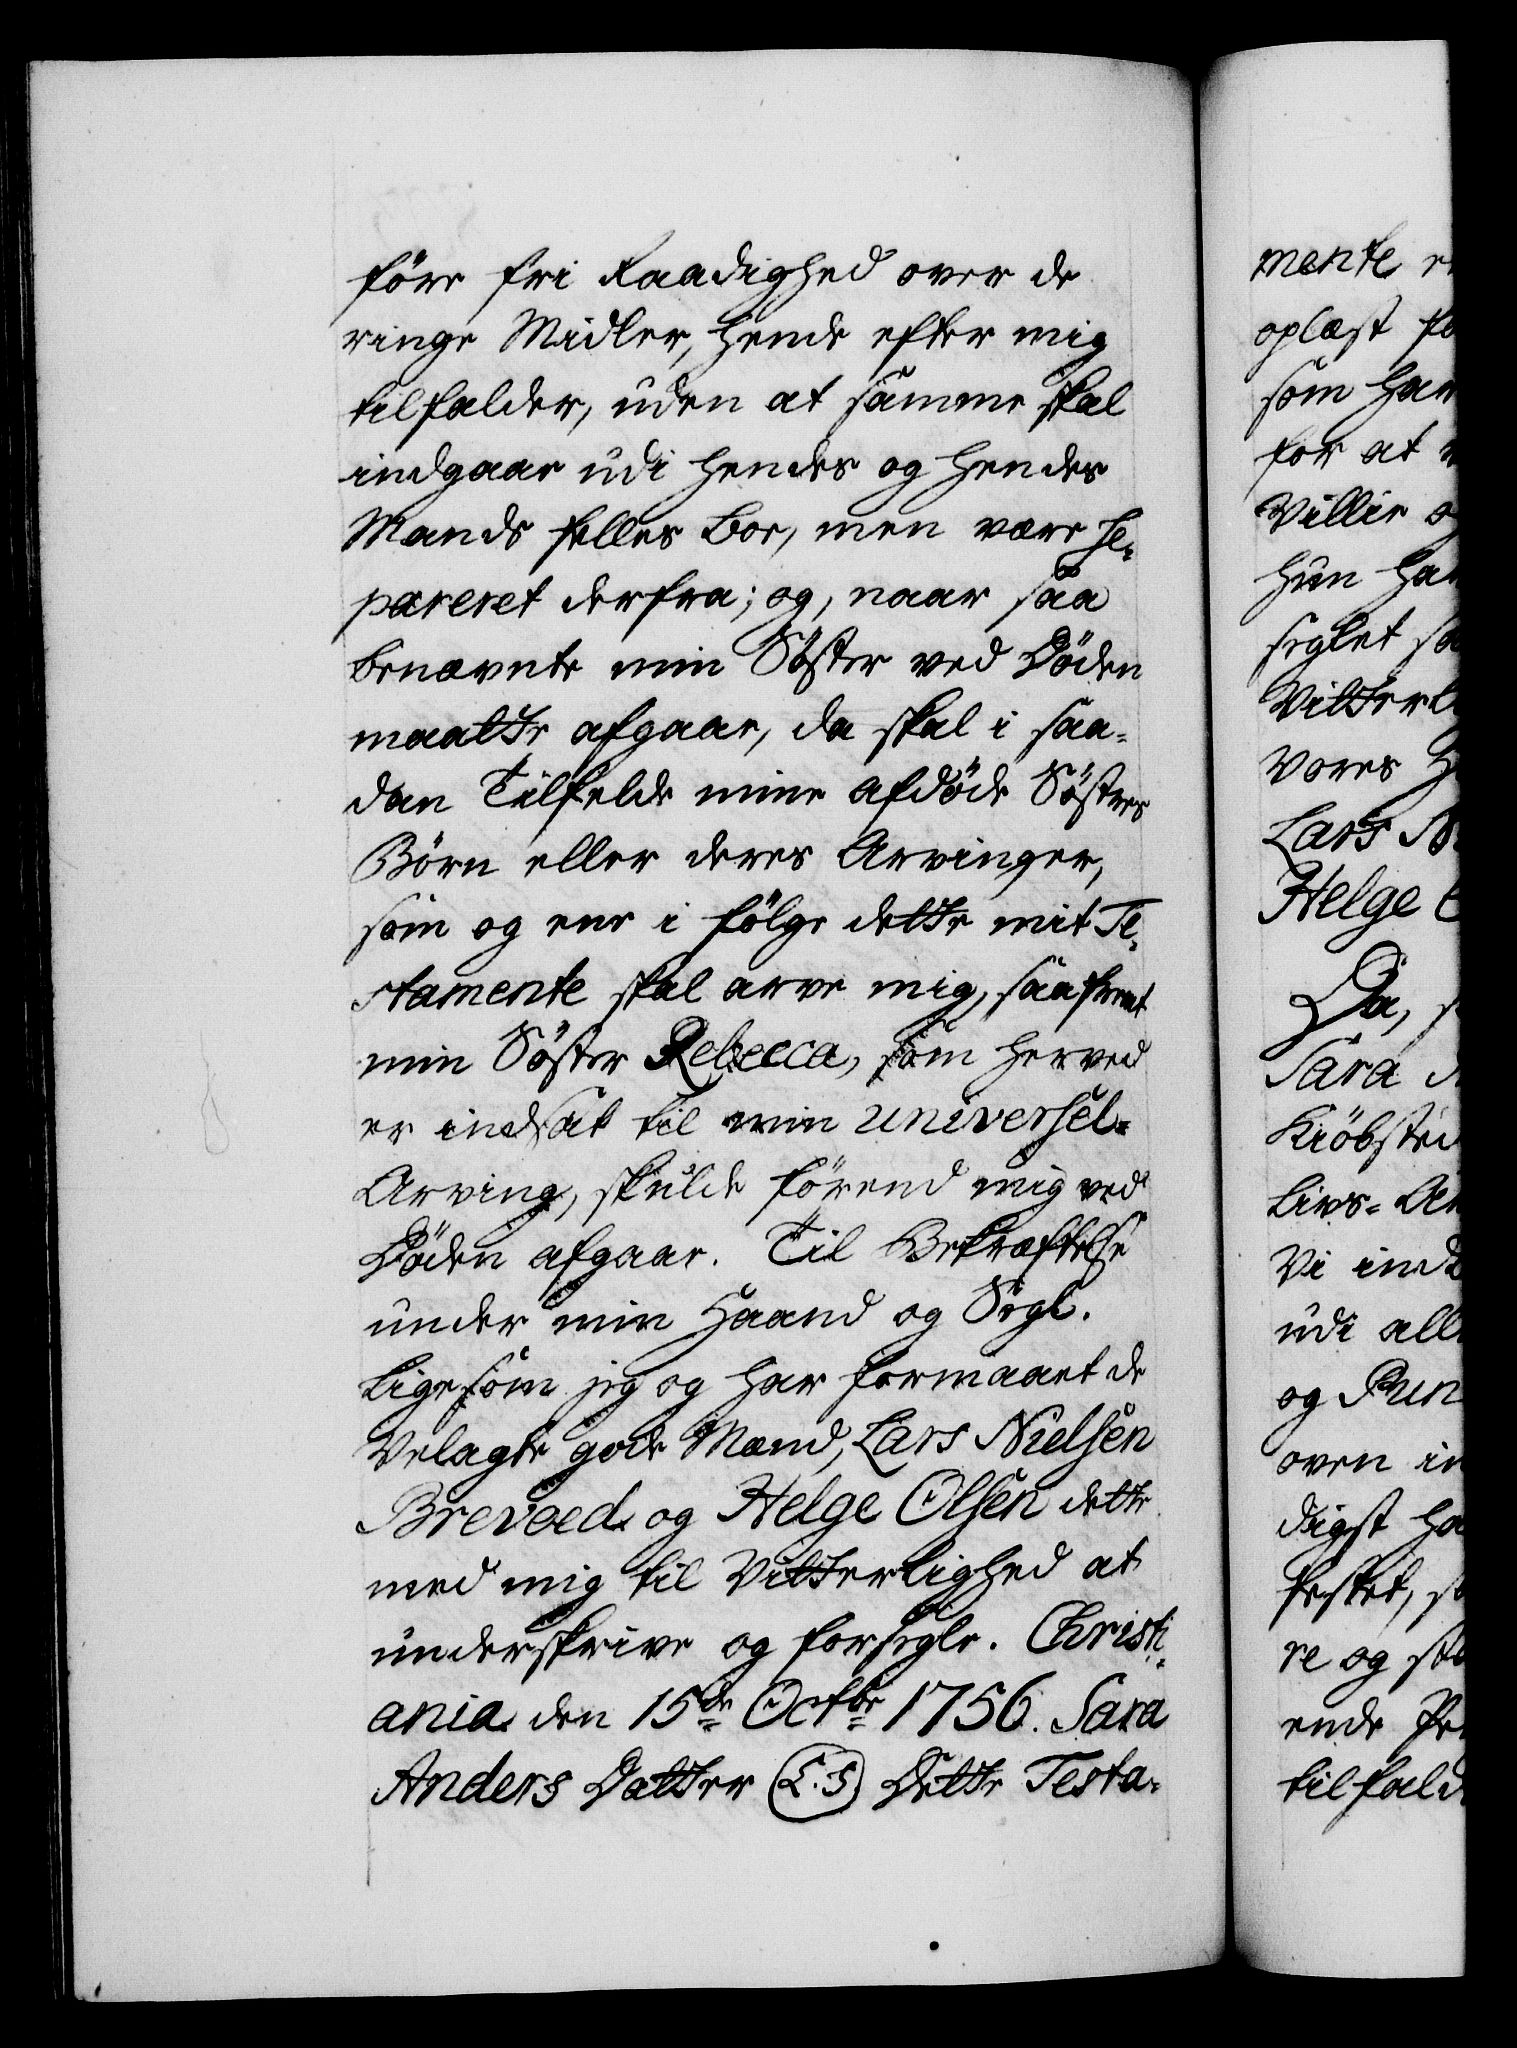 före fri Raadighed over de
ringe Midler, hende efter mig
tilfalder, uden at samme skal
indgaae udi hendes og hendes
Mands fælles Boe, men være se-
pareret derfra; og, naar saa
benævnte min Söster ved Döden
maatte afgaae, da skal i saa-
dan Tilfælde mine afdöde Söstres
Börn eller deres Arvinger,
som og ene i fölge dette mit Te-
stamente skal arve mig, saafremt
min Söster Rebecca, som herved
er indsat til min universel-
Arving, skulde förend mig ved
Döden afgaae. Til Bekræftelse
under min Haand og Segl.
Ligesom jeg og har formaaet de
Velagte gode Mænd, Lars Nielsen
Brevaed og Helge Olsen dette
med mig til Vitterlighed at
underskrive og forsegle. Christi-
ania den 15de Octbr 1756. Sara
Anders Datter (L.S.) Dette Testa-
mente
oplæst
som har
for at
Villie
hun
seglet
vores
Lars
Helge
Da,
Sara
Kiöbsted
Livs-
Vi
udi alle
og
oven
digst
re og
ende